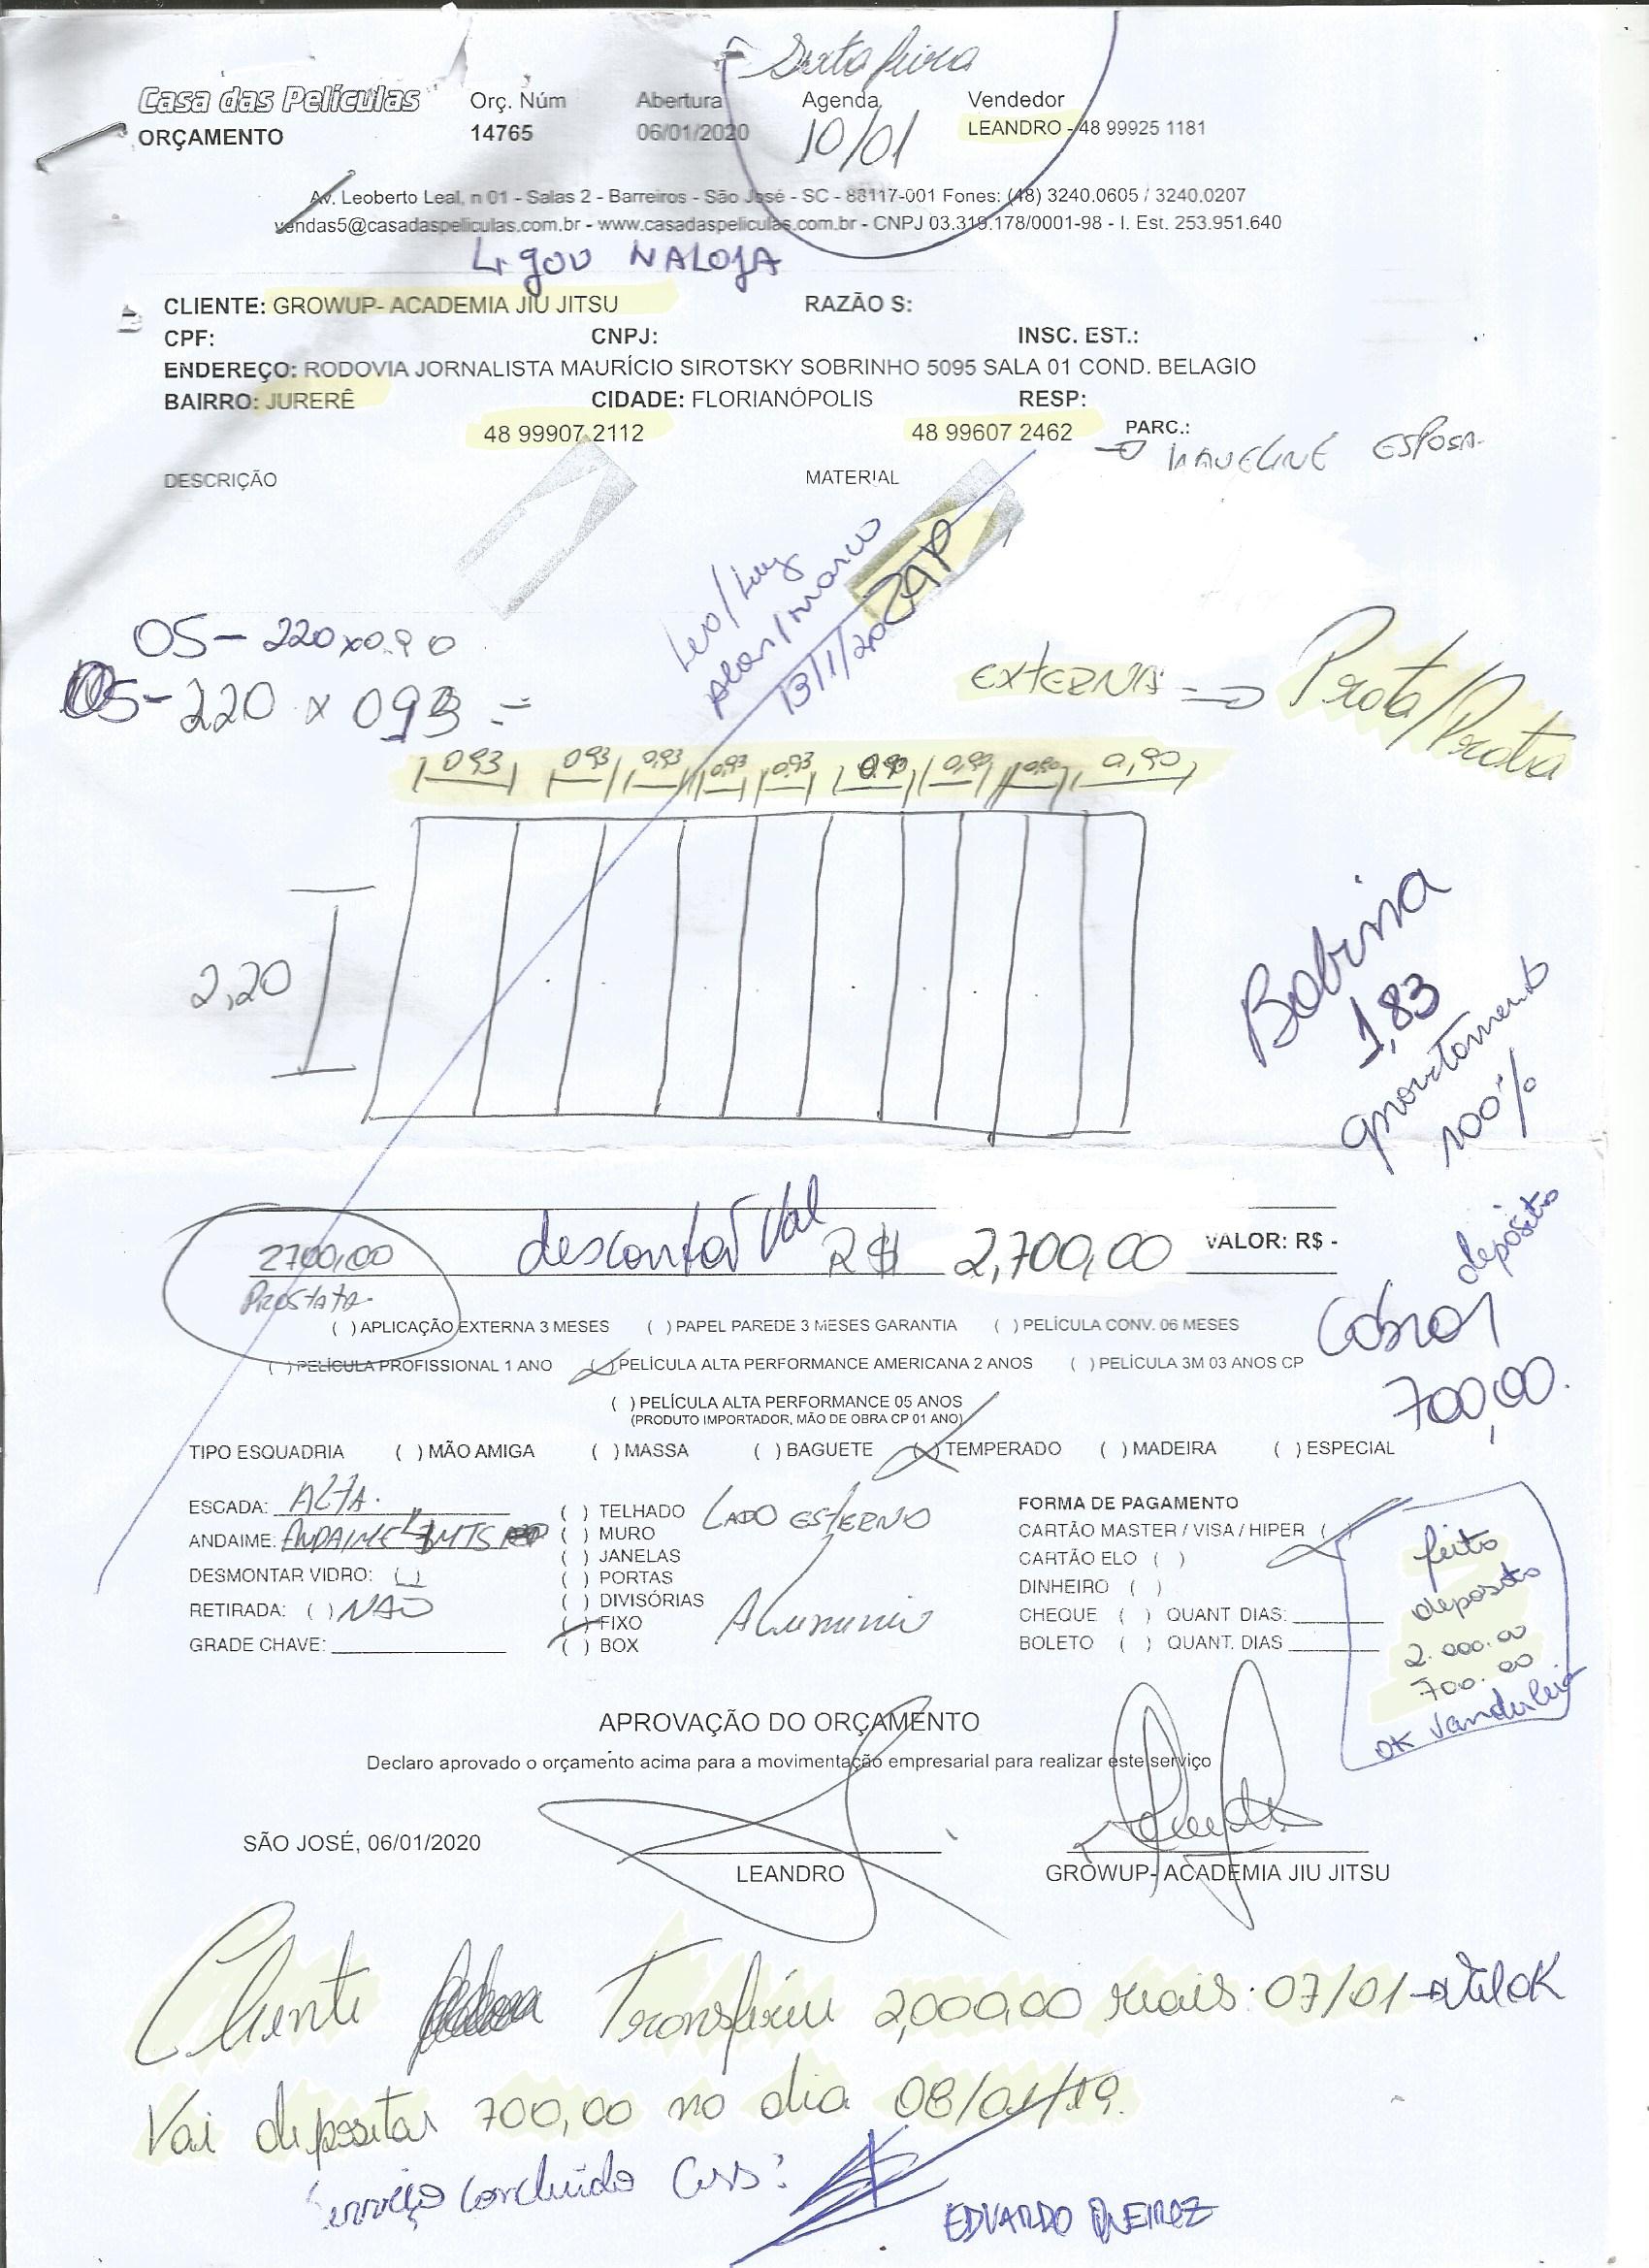 Sexta feira
Casa das Películas Orç. Núm Abertura Agenda Vendedor
ORÇAMENTO 14765 06/01/2020 10/01 LEANDRO - 48 99925 1181
Av. Leoberto Leal, n 01 - Salas 2 - Barreiros - São José - SC - 88117-001 Fones: (48) 3240.0605 / 3240.0207
vendas5@casadaspeliculas.com.br - www.casadaspeliculas.com.br - CNPJ 03.319.178/0001-98 - I. Est. 253.951.640
LIgou NA LOJA
CLIENTE: GROWUP- ACADEMIA JIU JITSU RAZÃO S:
CPF: CNPJ: INSC. EST.:
ENDEREÇO: RODOVIA JORNALISTA MAURÍCIO SIROTSKY SOBRINHO 5095 SALA 01 COND. BELAGIO
BAIRRO: JURERÊ CIDADE: FLORIANÓPOLIS RESP:
48 99907 2112 48 99607 2462 PARC.:
ESPOSA
DESCRIÇÃO MATERIAL
Leo/Luiz
Alan/marco
13/1/20 ZAP
05- 220x0.90
05- 220 x 093 =
EXTERNA => Prata/Prata
0,93 0,93 0,93 0,93 0,93 0,90 0,90 0,90 0,90
2,20
Bobina
1,83
100%
2700,00 descontar Val R$ 2,700,00 VALOR: R$ -
Cobrar depósito
700,00.
( ) APLICAÇÃO EXTERNA 3 MESES ( ) PAPEL PAREDE 3 MESES GARANTIA ( ) PELÍCULA CONV. 06 MESES
( ) PELÍCULA PROFISSIONAL 1 ANO ( ) PELÍCULA ALTA PERFORMANCE AMERICANA 2 ANOS ( ) PELÍCULA 3M 03 ANOS CP
( ) PELÍCULA ALTA PERFORMANCE 05 ANOS
(PRODUTO IMPORTADOR, MÃO DE OBRA CP 01 ANO)
TIPO ESQUADRIA ( ) MÃO AMIGA ( ) MASSA ( ) BAGUETE ( ) TEMPERADO ( ) MADEIRA ( ) ESPECIAL
ESCADA: ALTA.
ANDAIME: ANDAIME MTS
DESMONTAR VIDRO:
RETIRADA: ( ) NAO
GRADE CHAVE:
( ) TELHADO LADO EsTERNO
( ) MURO
( ) JANELAS
( ) PORTAS
( ) DIVISÓRIAS
( ) FIXO Aluminio
( ) BOX
FORMA DE PAGAMENTO
CARTÃO MASTER / VISA / HIPER ( )
CARTÃO ELO ( )
DINHEIRO ( )
CHEQUE ( ) QUANT DIAS:
BOLETO ( ) QUANT. DIAS
feito
deposito
2.000.00
700.00
OK Vanderleia
APROVAÇÃO DO ORÇAMENTO
Declaro aprovado o orçamento acima para a movimentação empresarial para realizar este serviço
SÃO JOSÉ, 06/01/2020
LEANDRO GROWUP- ACADEMIA JIU JITSU
Cliente Transferiu 2,000,00 reais: 07/01 OK
Vai depositar 700,00 no dia 08/01/19.
Serviço concluído Ass:
EDUARDO QUEIROZ